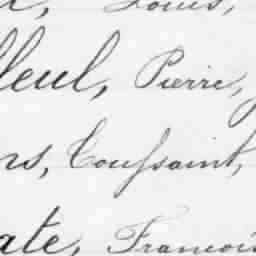 Louis,
lleul, Pierre,
rs, Toussaint,
ate, Francois